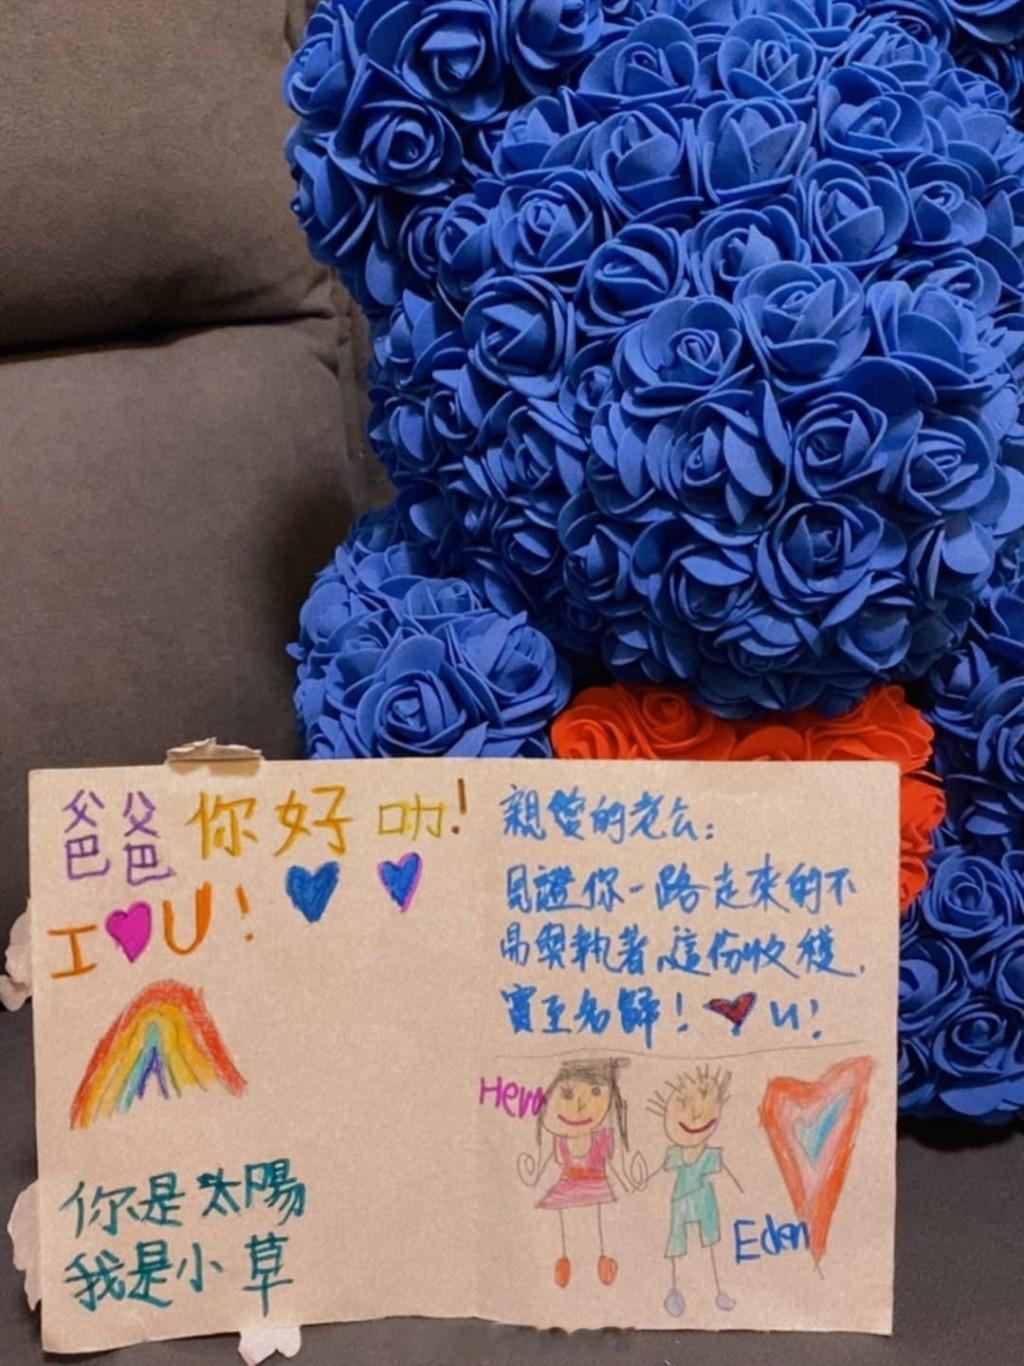 爸爸 你好叻!
I U!
你是太陽
我是小草
親愛的老公:
見證你一路走來的不
易與執著,這份收穫,
實至名歸! U!
Hera
Eden